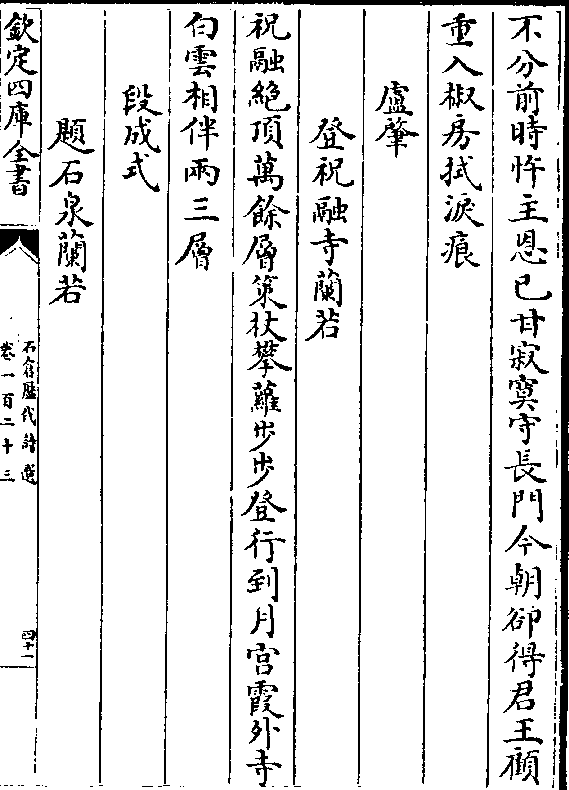 不分前時忤主恩已甘寂寞守長門今朝卻得君王顧
重入椒房拭淚痕
盧肇
登祝融寺蘭若
祝融絶頂萬餘層策杖攀蘿步步登行到月宫霞外寺
白雲相伴兩三層
段成式
題石泉蘭若
欽定四庫全書
石倉歷代詩選
卷一百二十三
四十一